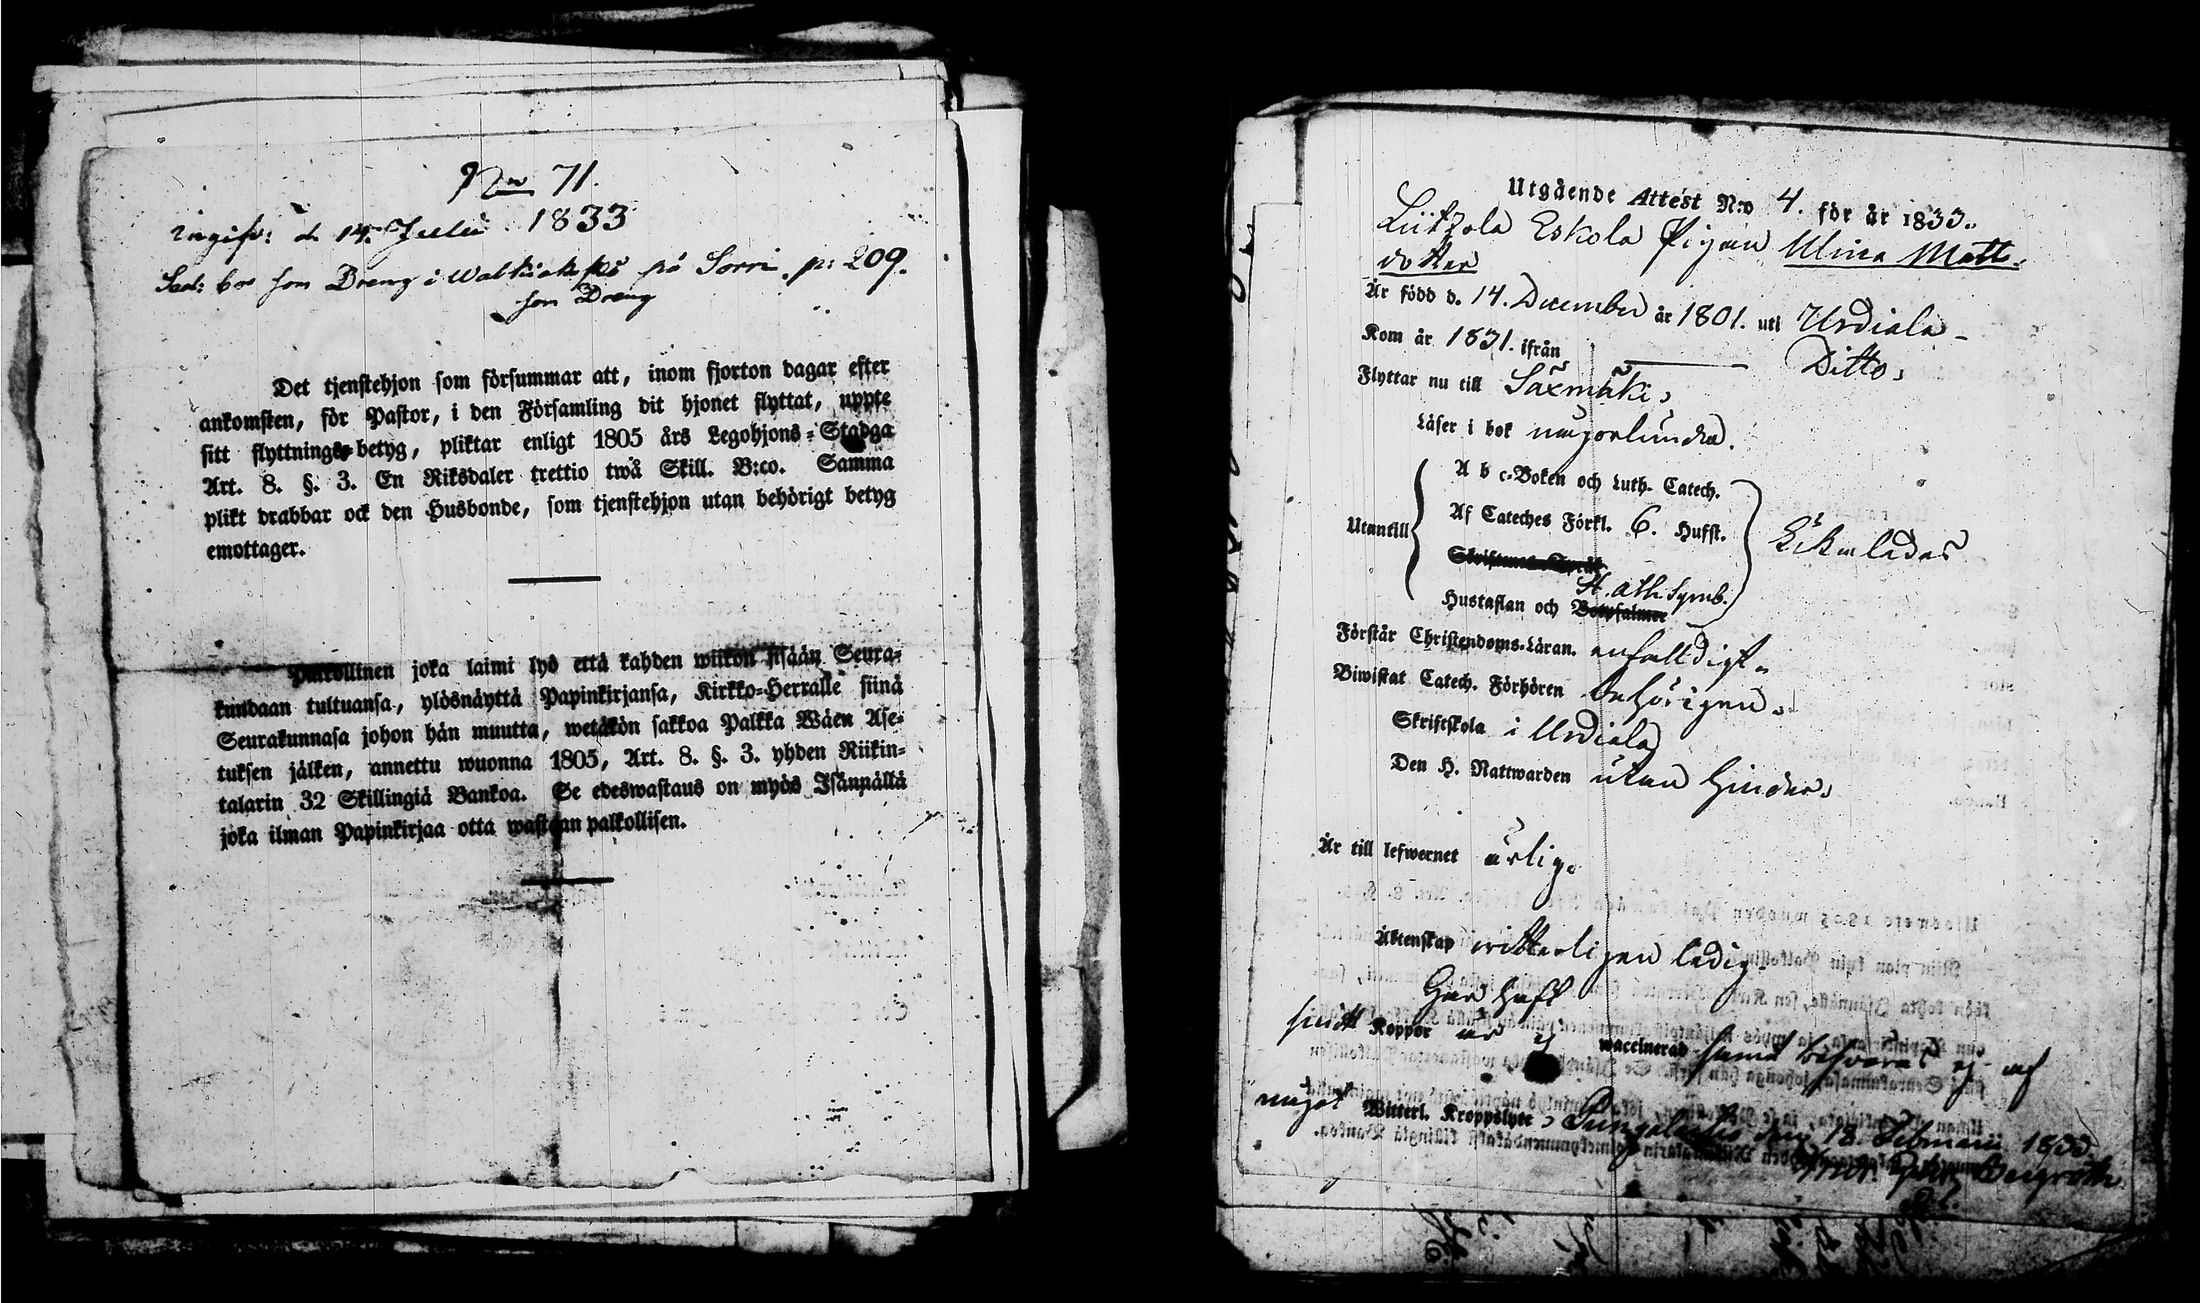 No 71.
ingifv: d. 14. Julii 1833
Sed: bor som Dreng i Walkiakoski på Sorri p: 209.
som Dreng
Det tjenstehjon som försummar att, inom fjorton dagar efter
ankomsten, för Pastor, i den Församling dit hjonet flyttat, uppte
sitt flyttnings-betyg, pliktar enligt 1805 års Legohjons-Stadga
Art. 8. §. 3. En Riksdaler trettio twå Skill. B:co. Samma
plikt drabbar ock den Husbonde, som tjenstehjon utan behörigt betyg
emottager.
Palkollinen joka laimi lyö että kahden wiikon sisään Seura-
kundaan tultuansa, ylösnäyttä Papinkirjansa, Kirkko-Herralle siinä
Seurakunnasa johon hän muutta, wetäkön sakkoa Palkka Wäen Ase-
tuksen jälken, annettu wuonna 1805, Art. 8. §. 3. yhden Riikin-
talarin 32 Skillingiä Bankoa. Se edeswastaus on myös Isännällä
joka ilman Papinkirjaa otta wastaan palkollisen.
Utgående Attest N:o 4. för år 1833.
Eskola Pigan Ulrica Matts-
dotter
Är född d. 14. December år 1801. uti Urdiala
Kom år 1831. ifrån Ditto,
Flyttar nu till Säxmäki,
Läser i bok någorlunda.
A b c-Boken och Luth. Catech.
Utantill Af Cateches Förkl. 6. Hufst.
Skriftenes Språk
St. Ath. Symb.
Hustaflan och Botpsalmer
Förstår Christendoms-Läran. enfalldigt.
Biwistat Catech. Förhören behörigen.
Skriftskola i Urdiala
Den H. Nattwarden utan hinder.
Är till lefwernet ärlig.
Äktenskap witterligen ledig.
Har haft
Koppor är ej waccinerad samt besväras ej af
något Witterl. Kroppslyte, den 18 Februarii 1833.
Bergroth